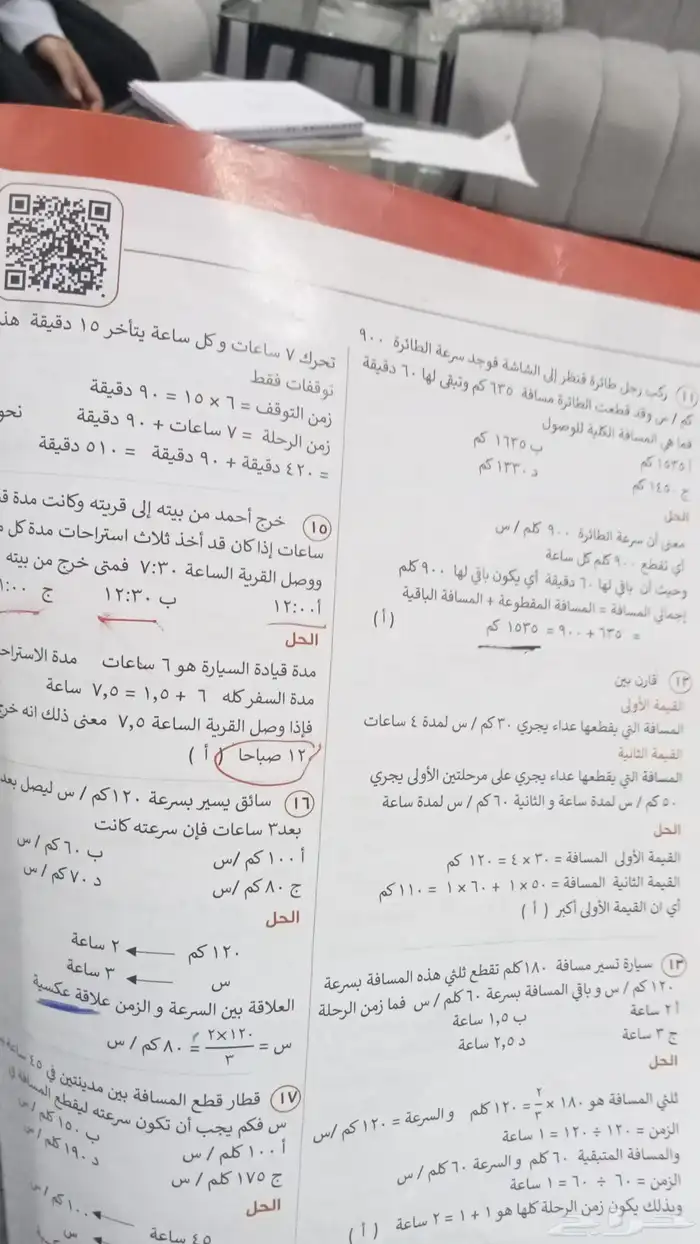 ١١ ركب رجل طائرة فنظر إلى الشاشة فوجد سرعة الطائرة ٩٠٠
كم / س وقد قطعت الطائرة مسافة ٦٣٥ كم وتبقى لها ٦٠ دقيقة
فما هي المسافة الكلية للوصول
أ ١٥٣٥ كم ب ١٦٣٥ كم
ج ١٤٥٠ كم د ١٣٣٠ كم
الحل
معنى أن سرعة الطائرة ٩٠٠ كلم / س
أي تقطع ٩٠٠ كلم كل ساعة
وحيث أن باقي لها ٦٠ دقيقة أي يكون باقي لها ٩٠٠ كلم
إجمالي المسافة = المسافة المقطوعة + المسافة الباقية
= ٦٣٥ + ٩٠٠ = ١٥٣٥ كم (أ)
١٢ قارن بين
القيمة الأولى
المسافة التي يقطعها عداء يجري ٣٠ كم / س لمدة ٤ ساعات
القيمة الثانية
المسافة التي يقطعها عداء يجري على مرحلتين الأولى يجري
٥٠ كم / س لمدة ساعة و الثانية ٦٠ كم / س لمدة ساعة
الحل
القيمة الأولى المسافة = ٣٠ × ٤ = ١٢٠ كم
القيمة الثانية المسافة = ٥٠ × ١ + ٦٠ × ١ = ١١٠ كم
أي ان القيمة الأولى أكبر ( أ )
١٣ سيارة تسير مسافة ١٨٠ كلم تقطع ثلثي هذه المسافة بسرعة
١٢٠ كم / س و باقي المسافة بسرعة ٦٠ كلم / س فما زمن الرحلة
أ ٢ ساعة ب ١,٥ ساعة
ج ٣ ساعة د ٢,٥ ساعة
الحل
ثلثي المسافة هو ١٨٠ × ٢/٣ = ١٢٠ كلم و السرعة = ١٢٠ كم / س
الزمن = ١٢٠ ÷ ١٢٠ = ١ ساعة
والمسافة المتبقية ٦٠ كلم و السرعة ٦٠ كلم / س
الزمن = ٦٠ ÷ ٦٠ = ١ ساعة
وبذلك يكون زمن الرحلة كلها هو ١ + ١ = ٢ ساعة ( أ )
تحرك ٧ ساعات و كل ساعة يتأخر ١٥ دقيقة
توقفات فقط
زمن التوقف = ٦ × ١٥ = ٩٠ دقيقة
زمن الرحلة = ٧ ساعات + ٩٠ دقيقة
= ٤٢٠ دقيقة + ٩٠ دقيقة = ٥١٠ دقيقة
١٥ خرج أحمد من بيته إلى قريته وكانت مدة
ساعات إذا كان قد أخذ ثلاث استراحات مدة كل
ووصل القرية الساعة ٧:٣٠ فمتى خرج من بيته
أ ١٢:٠٠ ب ١٢:٣٠ ج
الحل
مدة قيادة السيارة هو ٦ ساعات مدة
مدة السفر كله ٦ + ١,٥ = ٧,٥ ساعة
فإذا وصل القرية الساعة ٧,٥ معنى ذلك انه
١٢ صباحا ( أ )
١٦ سائق يسير بسرعة ١٢٠ كم / س ليصل
بعد ٣ ساعات فإن سرعته كانت
أ ١٠٠ كم / س ب ٦٠ كم / س
ج ٨٠ كم / س د ٧٠ كم / س
الحل
١٢٠ كم ← ٢ ساعة
س ← ٣ ساعة
العلاقة بين السرعة و الزمن علاقة عكسية
س = ٢×١٢٠/٣ = ٨٠ كم / س
١٧ قطار قطع المسافة بين مدينتين في ٤٥
س فكم يجب أن تكون سرعته ليقطع
أ ١٠٠ كلم / س ب ١٥٠ كلم / س
ج ١٧٥ كلم / س د ١٩٠ كلم / س
الحل
٤٥ ساعة ← ١٠٠ كم / س
س
حراج